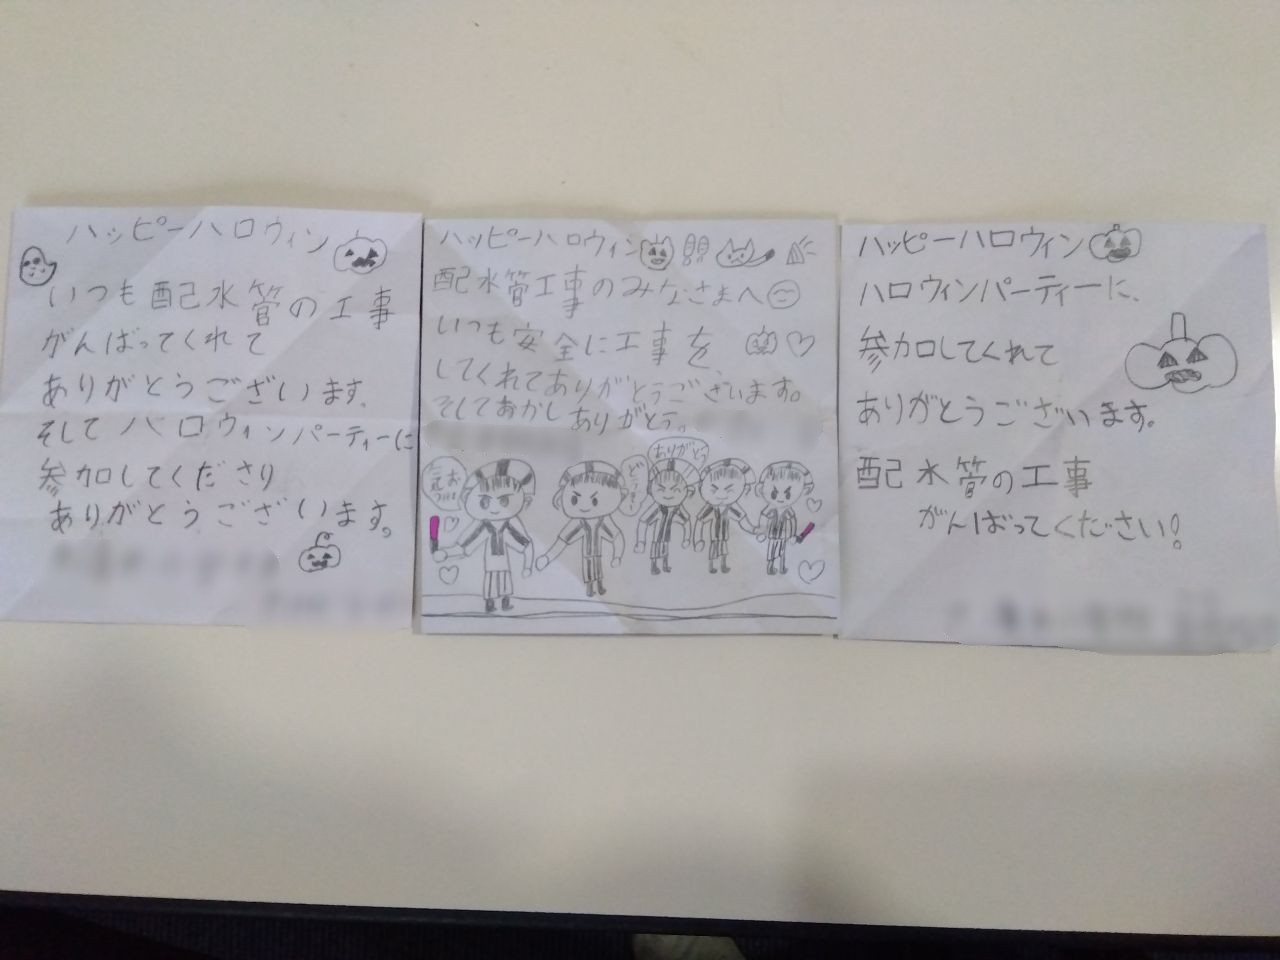 ハッピーハロウィン
いつも配水管の工事
がんばってくれて
ありがとうございます、
そしてハロウィンパーティーに
参加してくださり
ありがとうございます。
ハッピーハロウィン
配水管工事のみなさまへ
いつも安全に工事を、
してくれてありがとうございます。
そしておかしありがとう。
ありがとう
ハッピーハロウィン
ハロウィンパーティーに、
参加してくれて
ありがとうございます。
配水管の工事
がんばってください!